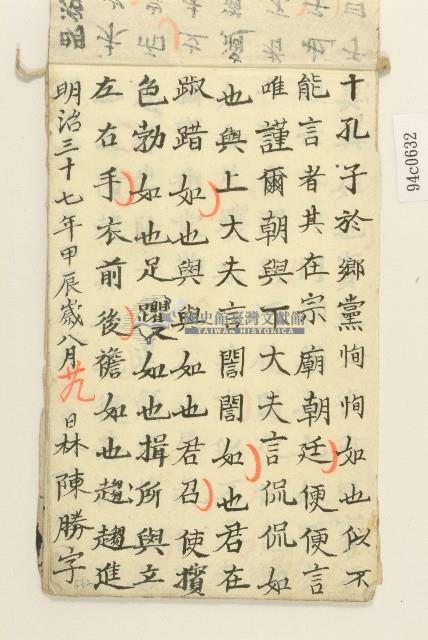 十孔子於鄉黨恂恂如也似不
能言者其在宗廟朝廷便便言
唯謹爾朝與下大夫言侃侃如
也與上大夫言誾誾如也君在
踧踖如也與與如也君召使擯
色勃如也足躩如也揖所與立
左右手衣前後襜如也趨趨進
明治三十七年甲辰歲八月廿九日林陳勝字
國史館臺灣文獻館
TAIWAN HISTORICA
94c0632